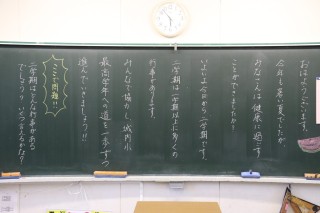 おはようございます。
今年も暑い夏でしたが、
みなさんは健康に過ごす
ことができましたか？
いよいよ今日から二学期です。
二学期は一学期以上に多くの
行事があります。
みんなで協力し、城内小
最高学年への道を一歩ずつ
進んでいきましょう!!
ここで問題!!
二学期はどんな行事がある
でしょう？いくつ言えるかな？